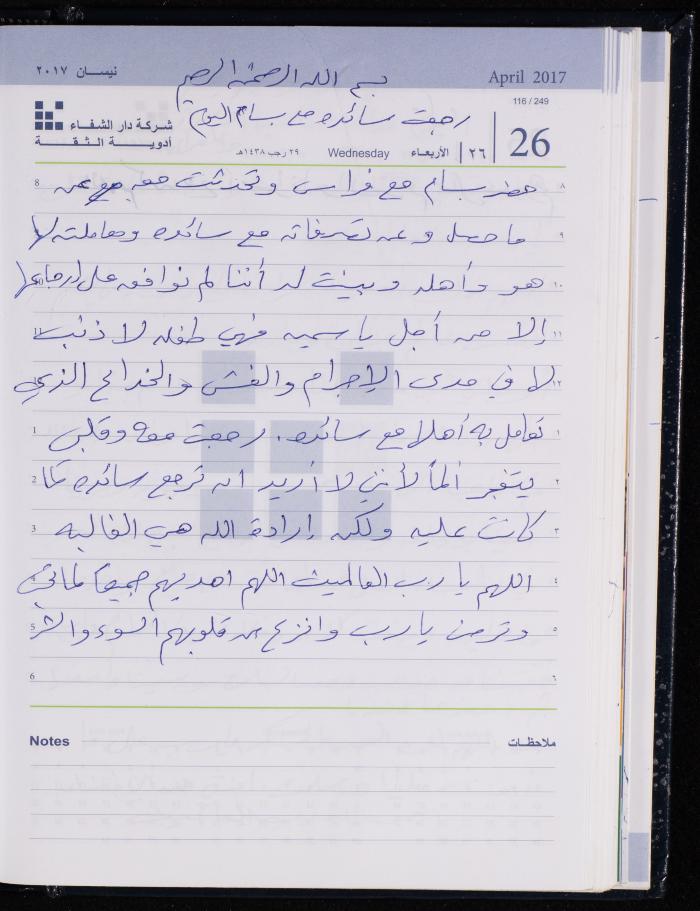 نيسان ٢٠١٧
April 2017
بسم الله الرحمن الرحيم
116 / 249
رجعت سائده مع بسام اليوم
شركة دار الشفاء
أدوية الثقة
26
٢٦
الأربعاء
Wednesday
٢٩ رجب ١٤٣٨هـ
8 حضر بسام مع فراس وتحدثت معه عن ٨
ما حصل وعن تصرفاته مع سائده ومعاملته لها ٩
هو وأهله وبينت له أننا لم نوافق على إرجاعها ١٠
11 إلا من أجل ياسمين فهي طفله لا ذنب ١١
لها في مدى الإجرام والغش والخداع الذي ١٢
1 تعامل به أهلها مع سائده. رجعت معه وقلبي ١
2 يتفجر ألماً لأنني لا أريد ان ترجع سائده كما ٢
3 كانت عليه ولكن إرادة الله هي الغالبه ٣
4 اللهم يا رب العالمين اللهم اهديهم جميعاً لما تحب ٤
5 وترضى يا رب وانزع من قلوبهم السوء والشر ٥
6 ٦
Notes ملاحظات